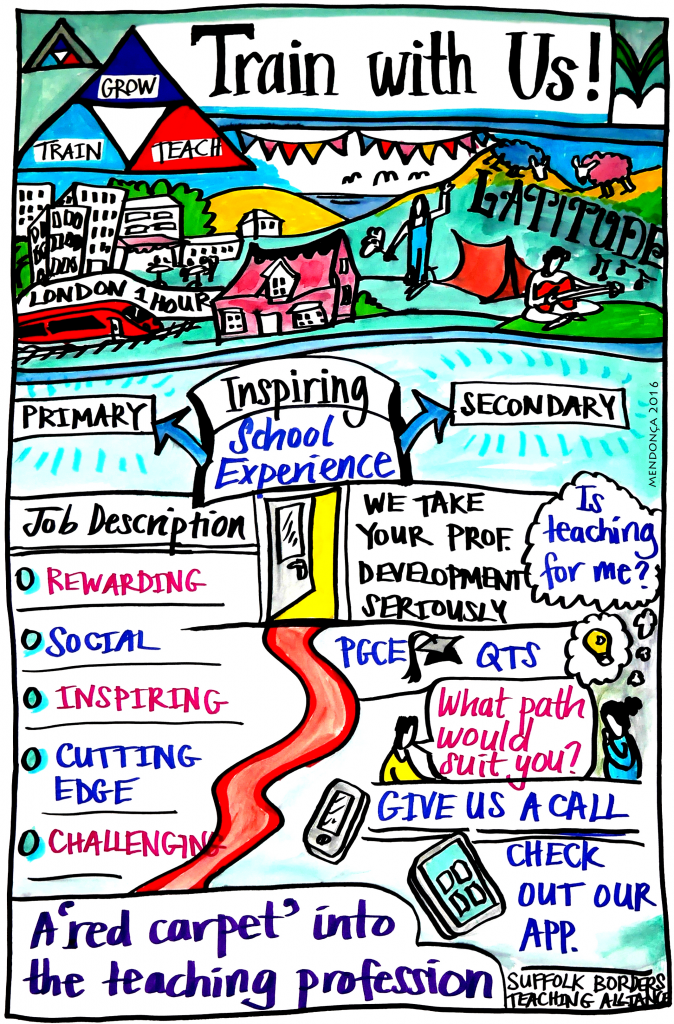 Train with Us!
GROW
TRAIN
TEACH
LATITUDE
LONDON 1 HOUR
Inspiring
School
Experience
PRIMARY
SECONDARY
MENDONÇA 2016
Job Description
REWARDING
SOCIAL
INSPIRING
CUTTING
EDGE
CHALLENGING
WE TAKE
YOUR PROF.
DEVELOPMENT
SERIOUSLY
Is
teaching
for me?
PGCE
QTS
What path
would
suit you?
GIVE US A CALL
CHECK
OUT OUR
APP.
A 'red carpet' into
the teaching profession
SUFFOLK BORDERS
TEACHING ALLIANCE